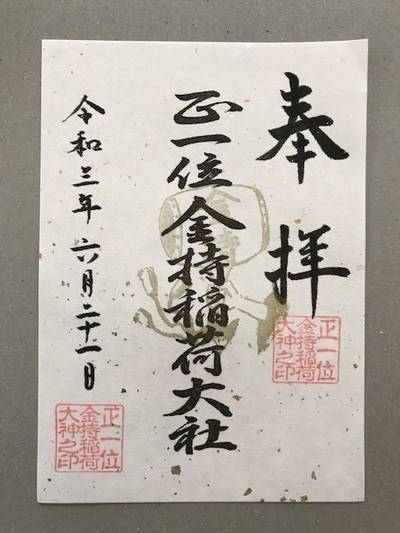 奉拝
正一位金持稲荷大社
令和三年六月二十一日
正一位
金持稲荷
大神之印
正一位
金持稲荷
大神之印